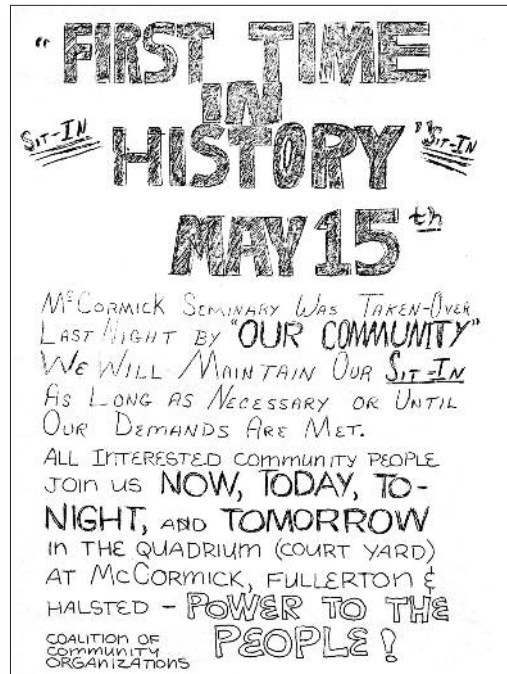 "FIRST TIME
IN
SIT-IN HISTORY" SIT-IN
MAY 15th
McCORMICK SEMINARY WAS TAKEN-OVER
LAST NIGHT BY "OUR COMMUNITY"
WE WILL MAINTAIN OUR SIT-IN
AS LONG AS NECESSARY OR UNTIL
OUR DEMANDS ARE MET.
ALL INTERESTED COMMUNITY PEOPLE
JOIN US NOW, TODAY, TO-
NIGHT, AND TOMORROW
IN THE QUADRIUM (COURT YARD)
AT McCORMICK, FULLERTON &
HALSTED - POWER TO THE
PEOPLE!
COALITION OF
COMMUNITY
ORGANIZATIONS